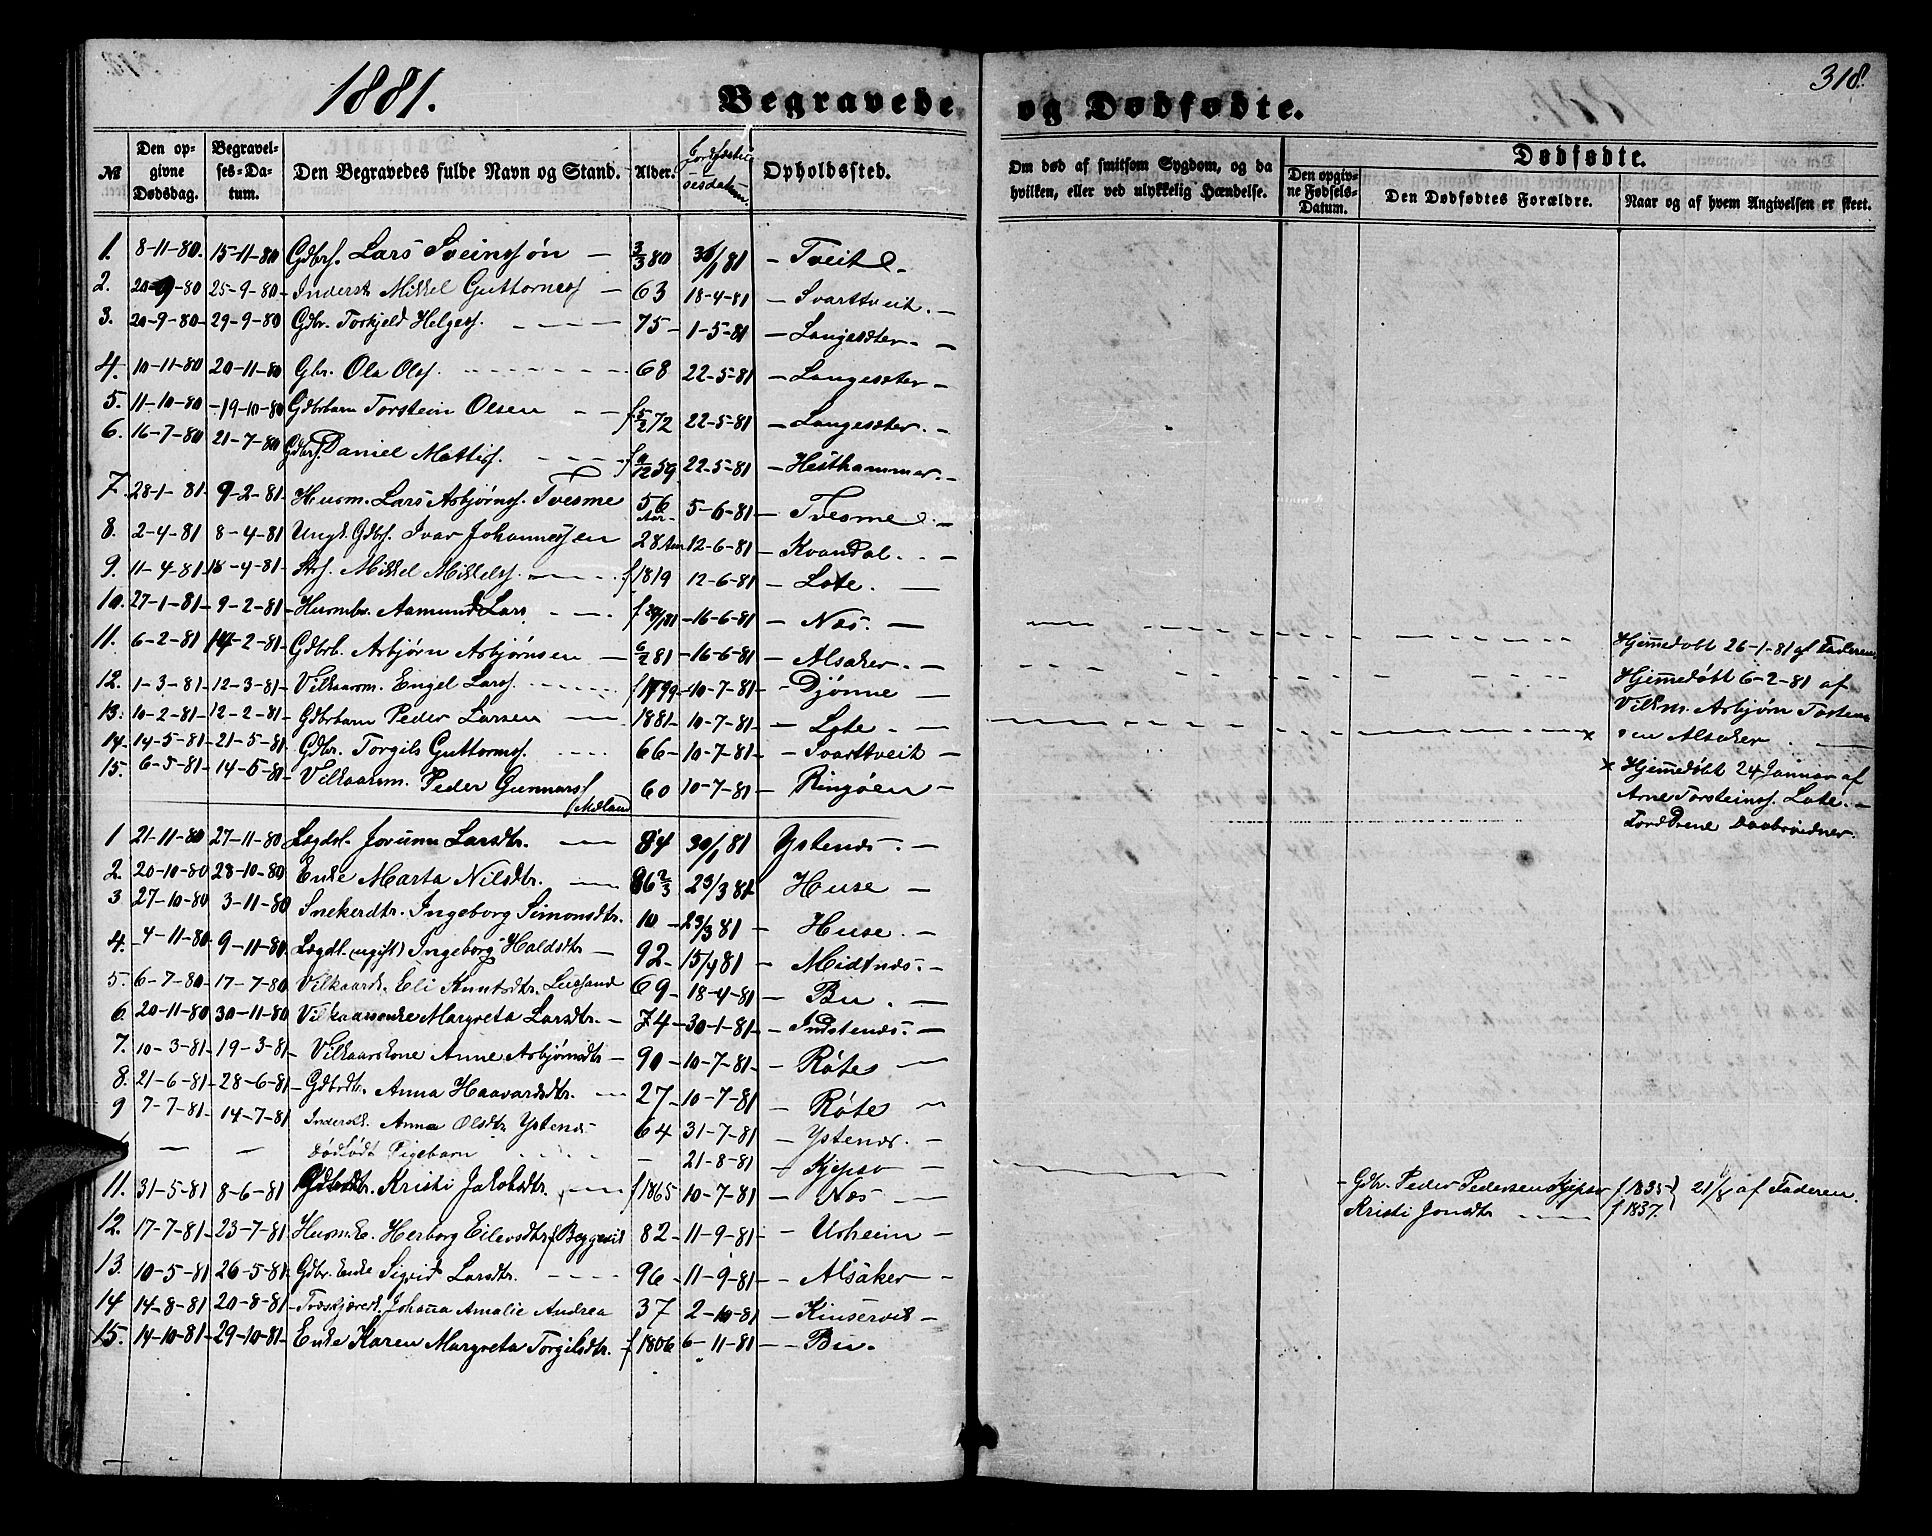 1881.
Begravede og Dødfødte.
318.
№
Den opgivne Dødsdag.
Begravelses-Datum.
Den Begravedes fulde Navn og Stand.
Alder.
Jordfæstelsesdatum.
Opholdssted.
Om død af smitsom Sygdom, og da hvilken, eller ved ulykkelig Hændelse.
Dødfødte.
Den opgivne Fødsels-Datum.
Den Dødfødtes Forældre.
Naar og af hvem Angivelsen er skeet.
1. 8-11-80. 15-11-80 Gdbrs. Lars Sveinssøn — 3/3 80 30/1 81 — Tveit.
2. 20-9-80 25-9-80 Inderst Mikkel Guttormss 63 18-4-81 — Svarttveit. —
3. 20-9-80 29-9-80 Gdbr. Torkjeld Helges. 75 1-5-81 — Langesæter. —
4. 10-11-80 20-11-80 Gbr. Ola Ols. 68 22-5-81 — Langesæter —
5. 11-10-80 19-10-80 Gdbrbarn Torstein Olsen — f 5/2 72 22-5-81 — Langesæter. —
6. 16-7-80 21-7-80 Gdbrs. Daniel Mattiss. f 9/12 59 22-5-81 — Hesthammar. —
7. 28-1-81 9-2-81 Husm. Lars Asbjørns. Tvesme 56 Aar 5-6-81 — Tvesme. —
8. 2-4-81 8-4-81 Ungk. Gdbs. Ivar Johannessen 28 Aar 12-6-81 — Kvandal. —
9. 11-4-81 18-4-81 Mikkel Mikkels. f 1819 12-6-81 — Lote. —
10. 27-1-81 9-2-81 Husmbr. Aamund Lars f 20/1 81 16-6-81 — Næs. — Hjemedøbt 26-1-81 af Faderen
11. 6-2-81 14-2-81 Gdbrb. Asbjørn Asbjørnsen — 6/2 81 16-6-81 — Alsaker. — Hjemedøbt 6-2-81 af
Vilkm. Asbjørn Torstens
sen Alsaker
12. 1-3-81 12-3-81 Vilkaarsm. Engel Lars. f 1799 10-7-81 — Djønne —
13. 10-2-81 12-2-81 Gdbrbarn Peder Larsen — 1881 10-7-81 — Lote. — ×
× Hjemedøbt 24 Januar af
Arne Torsteins. Lote. —
14. 14-5-81 21-5-81 Gdbr. Torgils Guttorms. 66 10-7-81 — Svarttveit —
15. 6-5-81 14-5-81 Vilkaarsm. Peder Gunnars. (Mæland 60 10-7-81 — Ringøen —
1 21-11-80 27-11-80 Lægdsl. Jorunn Larsdtr. — 84 30/1 81 Ystenæs. —
2. 20-10-80 28-10-80 Enke Marta Nilsdtr. — 86 2/3 23/3 81 — Huse —
3 27-10-80 3-11-80 Snekerdtr. Ingeborg Simonsdtr. 10 23/3 81 — Huse. —
4. 4-11-80 9-11-80 Lægdl. (ugift) Ingeborg Haldsdtr — 92 15/4 81 — Midtnæs. —
5. 6-7-80 17-7-80 Vilkaarsk. Eli Knutsdtr. 69 18-4-81 — Bu. —
6. 20-11-80 30-11-80 Vilkaarsenke Margreta Larsdtr. — 74 30-1-81 — Indstenæs. —
7. 10-3-81 19-3-81 Vilkaarskone Anne Asbjørnsdtr — 90 10-7-81 — Røte —
8. 21-6-81 28-6-81 Gdbrdtr. Anna Haavardsdtr. — 27 10-7-81 — Røte —
9 7-7-81 14-7-81 Indersk. Anna Olsdtr Ystenæs 64 31-7-81 — Ystenæs. —
— — Dødfødt Pigebarn — 21-8-81 — Kjepso —
Gdbr. Peder Pedersen Kjepso f 1835 } 21/8 af Faderen.
Kristi Jonsdtr f 1837.
11. 31-5-81 8-6-81 Gdbrdtr. Kristi Jakobsdtr. — f 1865 10-7-81 — Næs —
12. 17-7-81 23-7-81 Husm.E. Herborg Eilevsdtr 82 11-9-81 — Utheim —
13. 10-5-81 26-5-81 Gdbr. Enke Sigrid Larsdtr. 96 11-9-81 — Alsaker —
14 14-8-81 20-8-81 Johana Amalie Andrea 37 2-10-81 — Kinservik —
15. 14-10-81 29-10-81 Enke Karen Margreta Torgilsdtr. f 1806 6-11-81 — Bu.